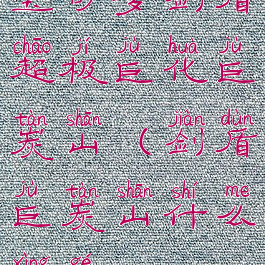 chāo jí jù huà jù
超极巨化巨
tàn shān jiàn dùn
炭山(剑盾
jù tàn shān shí me
巨炭山什么
xìng gé